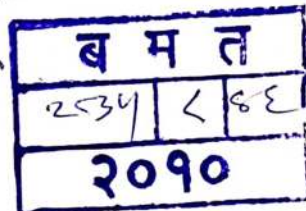 ब म त
२५३५ ८ ४६
२०१०